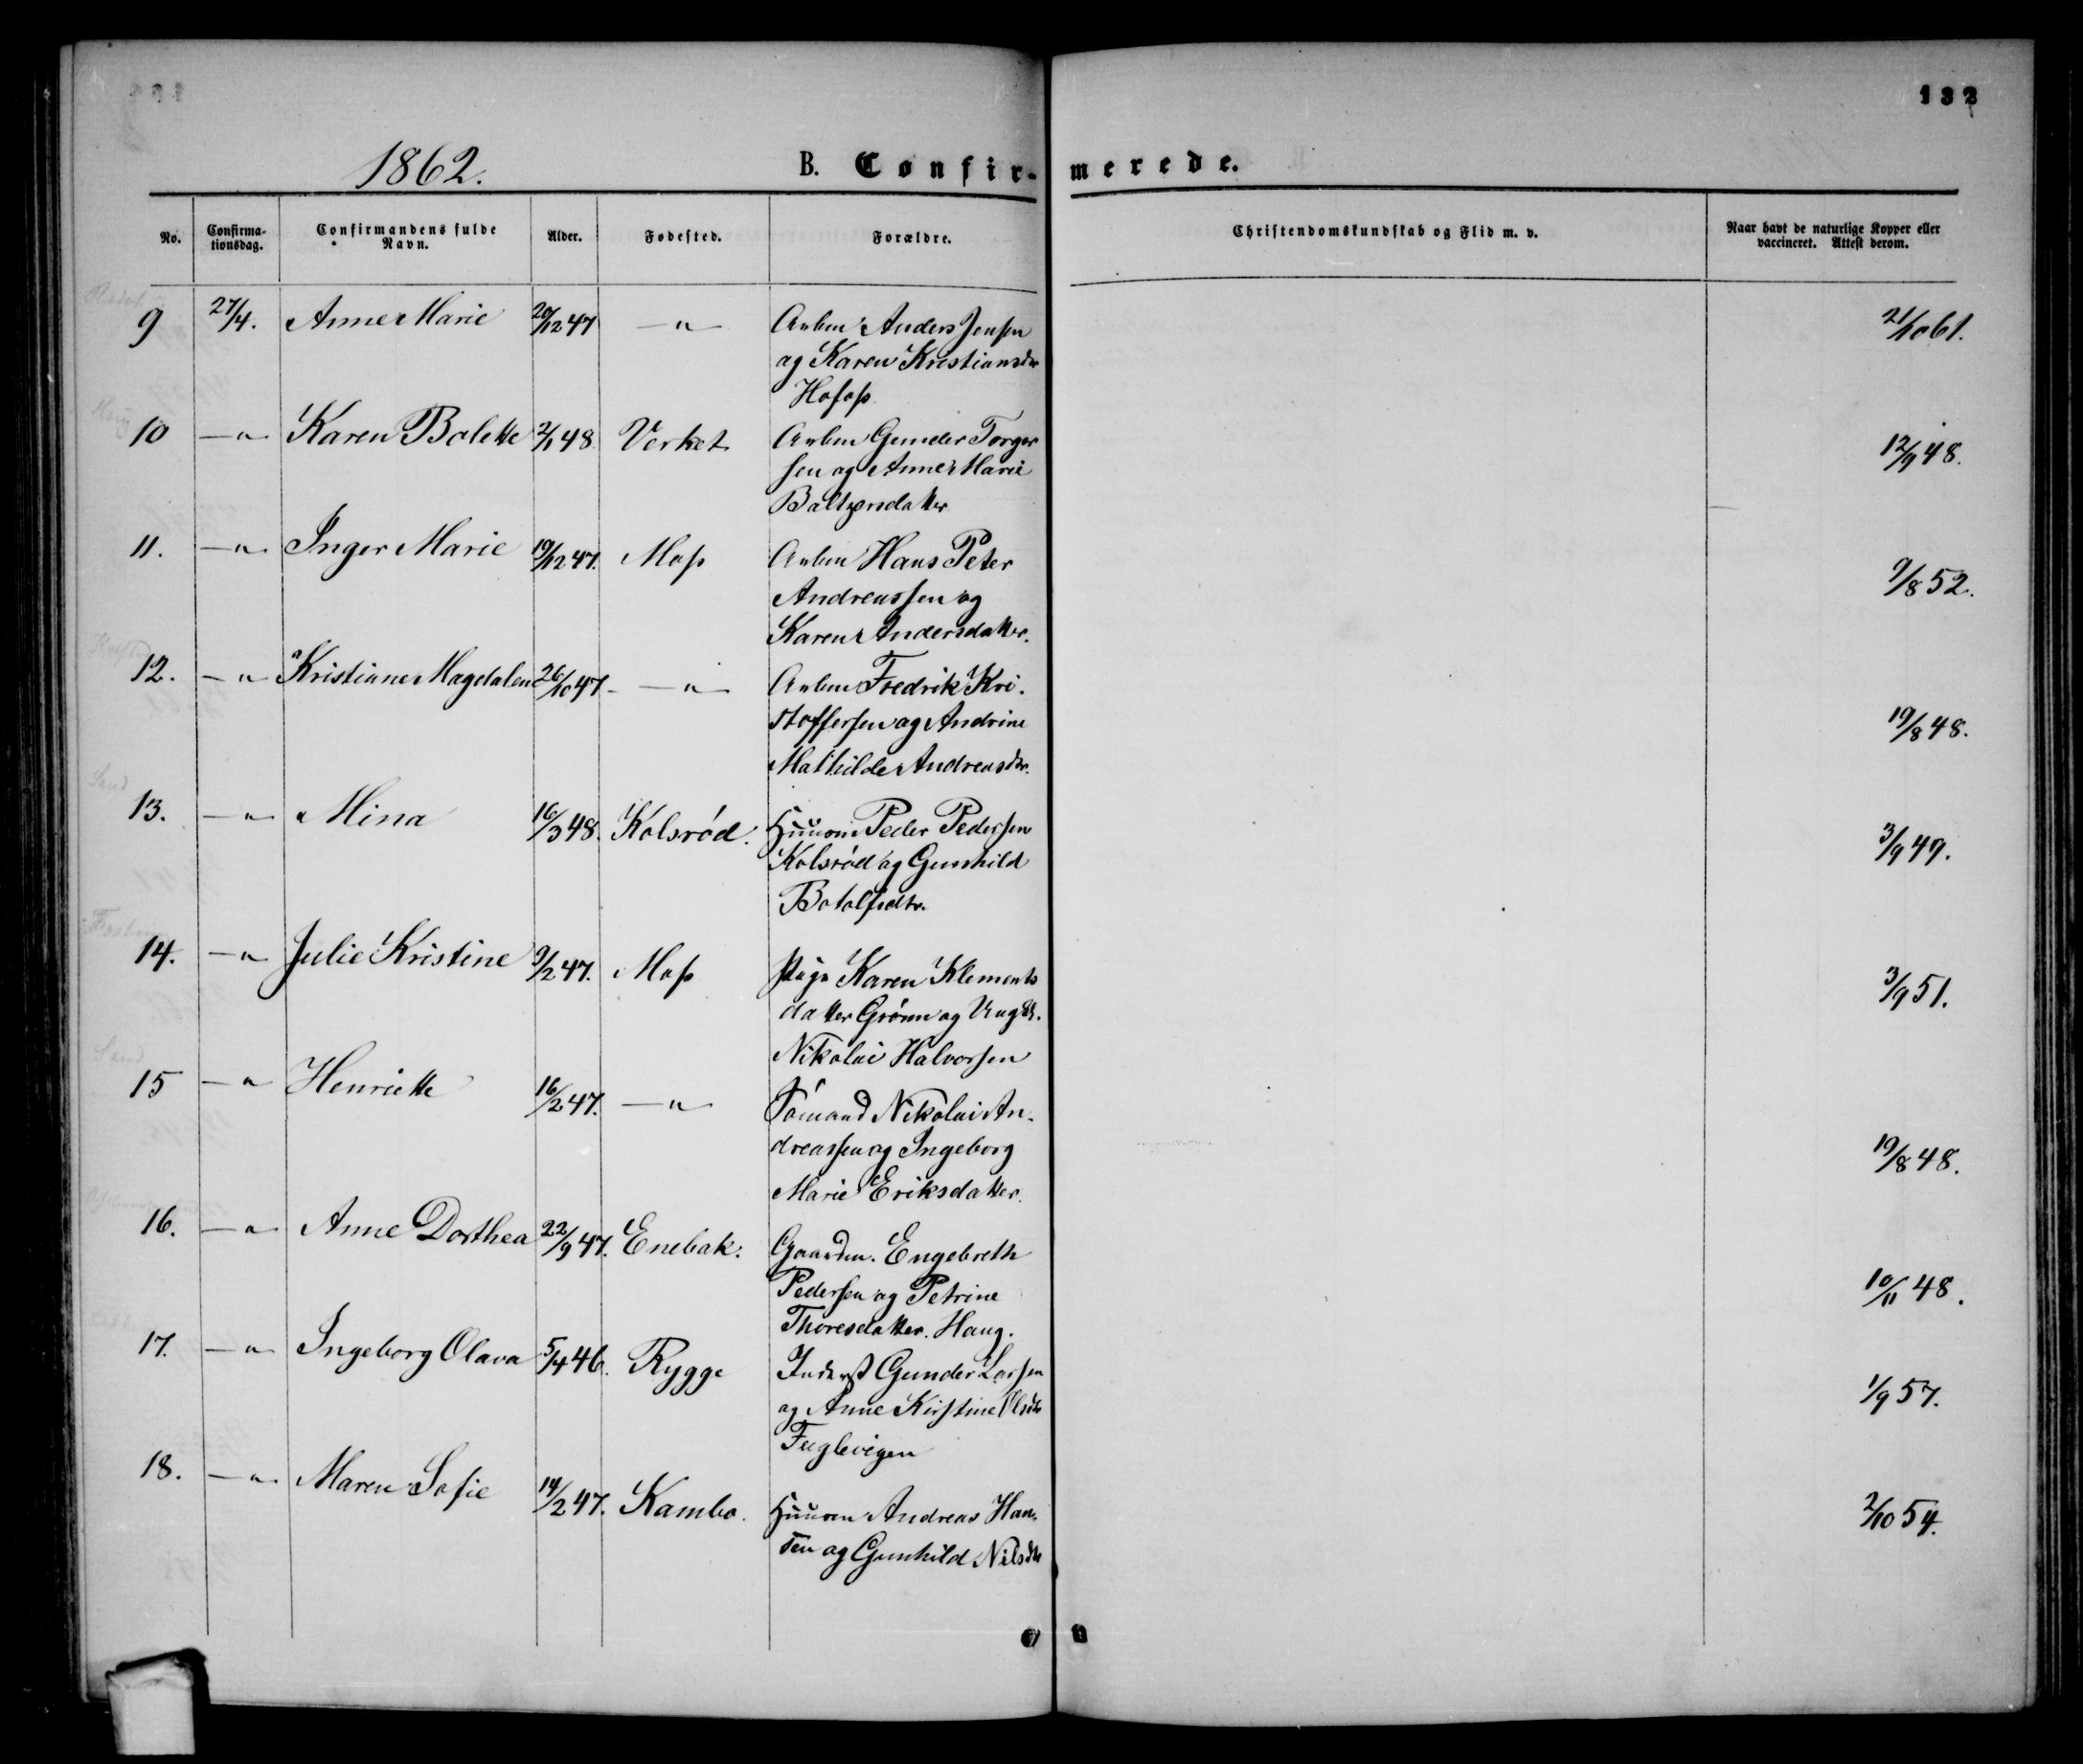 132
1862.
B. Confir-merede.
No. Confirma-tionsdag. Confirmandens fulde Navn. Alder. Fødested. Forældre. Christendomskundskab og Flid m. v. Naar havt de naturlige Kopper eller vaccineret. Attest derom.
9 27/4. Anne Marie 20/12 47 —"— Arbm Anders Jensen 21/10 61.
og Karen Kristiansdtr
10 —"— Karen Bolette 2/1 48 Verket Arbm Gunder Torger 12/9 48.
sen og Anne Marie
Baltzersdatter
11. —"— Inger Marie 19/12 47. Moss Arbm Hans Peter 9/8 52.
Andreassen og
Karen Andersdatter.
12. —"— Kristiane Magdalene 26/10 47. —"— Arbm Fredrik Kri- 19/8 48.
stoffersen og Andrine
Mathilde Andreasdtr.
13. —"— Mina 16/3 48. Kolsrød. Huusm Peder Pedersen 3/9 49.
Kolsrød og Gunhild
Botolfsdtr.
14. —"— Julie Kristine 9/2 47. Moss Pige Karen Klements 3/9 51.
datter Grønn og Ungk.
Nikolai Halvorsen
15 —"— Henriette 16/2 47. —"— Sømand Nikolai An- 19/8 48.
dreassen og Ingeborg
Marie Eriksdatter.
16. —"— Anne Dorthea 22/9 47. Enebak. Gaardm. Engebreth 10/11 48.
Pedersen og Petrine
Thoresdatter. Haug.
17. —"— Ingeborg Olava 5/4 46. Rygge Inderst Gunder Larsen 1/9 57.
og Anne Kirstine Olsdtr
Fuglevigen
18. —"— Maren Sofie 14/2 47. Kambo. Huusm Andreas Han- 2/10 54.
sen og Gunhild Nilsdtr